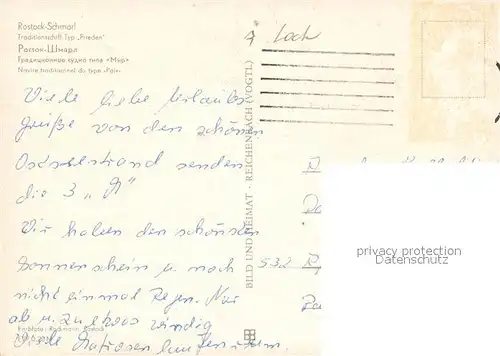 Rostock-Schmarl
Traditionsschiff Typ „Frieden"
Росток-Шмарл
Традиционное судно типа «Мир»
Navire traditionnel du type «Paix»
Loch
Viele liebe Urlaubs
grüße von den schönen
Ostseestrand senden
die 3 „
Wir haben den schönsten
Sonnenschein u. noch
nicht einmal Regen. Nur
ab u. zu etwas windig
Viele Matrosen laufen rum.
Farbfoto: Rockmann, Rostock
BILD UND HEIMAT · REICHENBACH (VOGTL)
532
privacy protection
Datenschutz